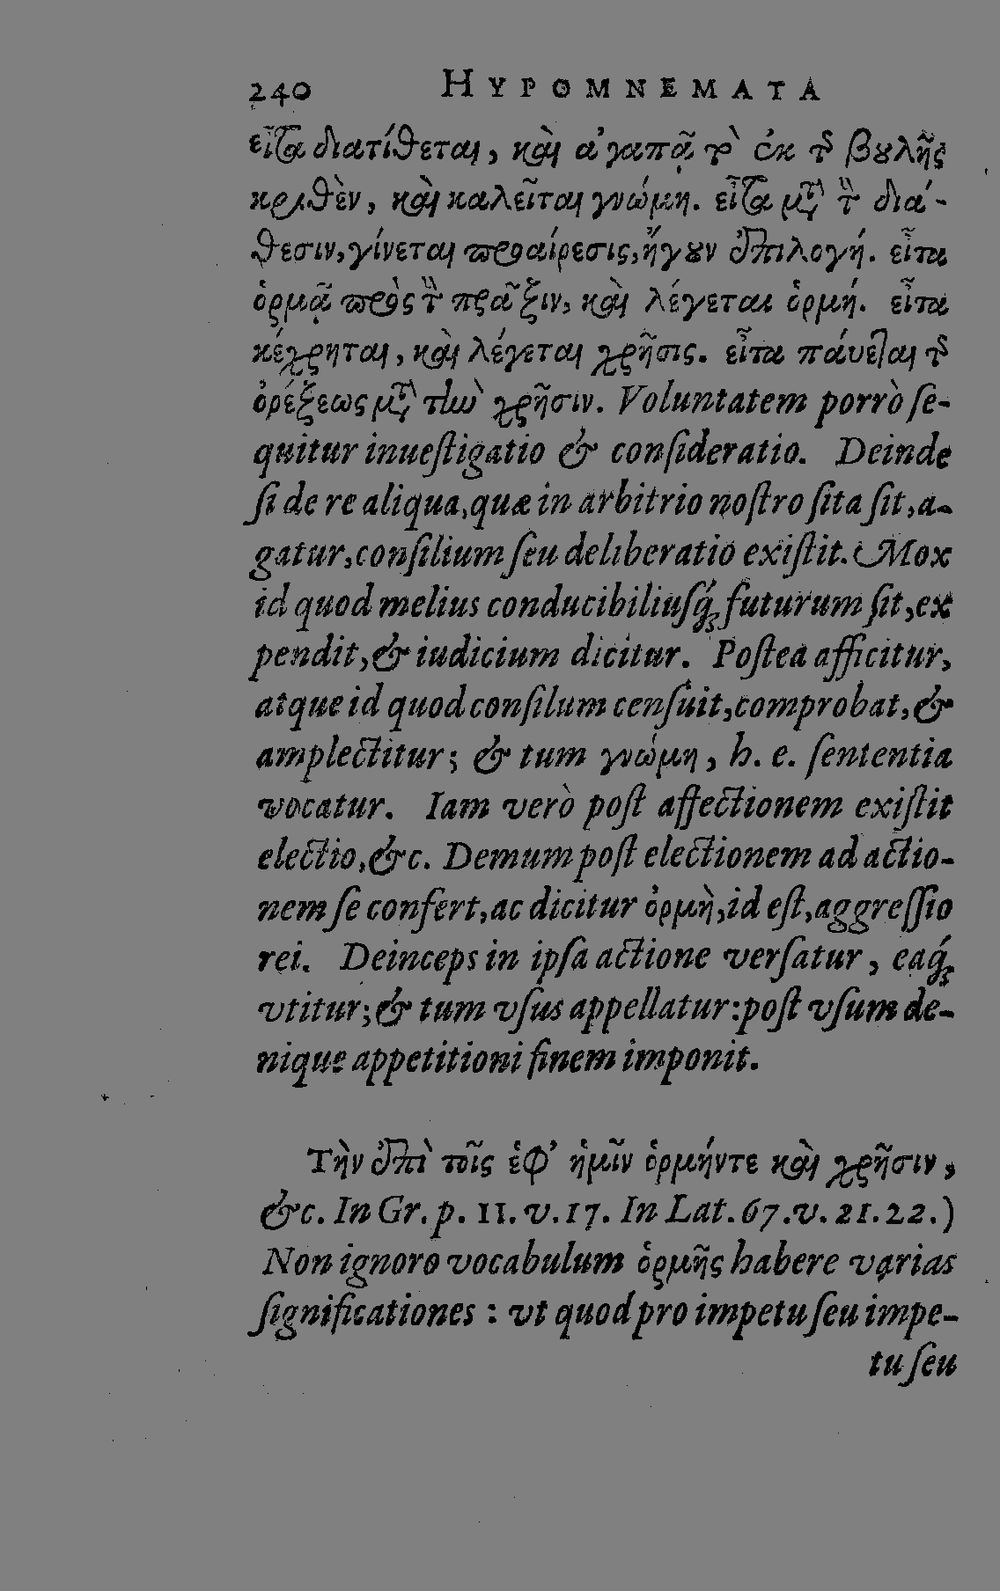 240 HYPOMNEMATA
εἶτα διατίθεται, καὶ ἀγαπᾷ τὸ ἐκ τῆς βουλῆς
κριθὲν, καὶ καλεῖται γνώμη. εἶτα μετὰ τὴν διά-
θεσιν, γίνεται προαίρεσις, ἤγουν ἐπιλογή. εἶτα
ὁρμᾷ πρὸς τὴν πρᾶξιν, καὶ λέγεται ὁρμή. εἶτα
κέχρηται, καὶ λέγεται χρῆσις. εἶτα παύεται τῆς
ὀρέξεως μετὰ τὴν χρῆσιν. Voluntatem porrò ſe-
quitur inueſtigatio & conſideratio. Deinde
ſi de re aliqua, quæ in arbitrio noſtro ſita ſit, a-
gatur, conſilium ſeu deliberatio exiſtit. Mox
id quod melius conducibiliuſq́; futurum ſit, ex
pendit, & iudicium dicitur. Poſtea afficitur,
atque id quod conſilum cenſuit, comprobat, &
amplectitur; & tum γνώμη, h. e. ſententia
vocatur. Iam verò poſt affectionem exiſtit
electio, &c. Demum poſt electionem ad actio-
nem ſe confert, ac dicitur ὁρμὴ, id eſt, aggreſſio
rei. Deinceps in ipſa actione verſatur, eaq́;
vtitur; & tum vſus appellatur: poſt vſum de-
nique appetitioni finem imponit.
Τὴν ἐπὶ τοῖς ἐφ’ ἡμῖν ὁρμήντε καὶ χρῆσιν,
&c. In Gr. p. 11. v. 17. In Lat. 67. v. 21. 22.)
Non ignoro vocabulum ὁρμῆς habere varias
ſignificationes: vt quod pro impetu ſeu impe-
tu ſeu